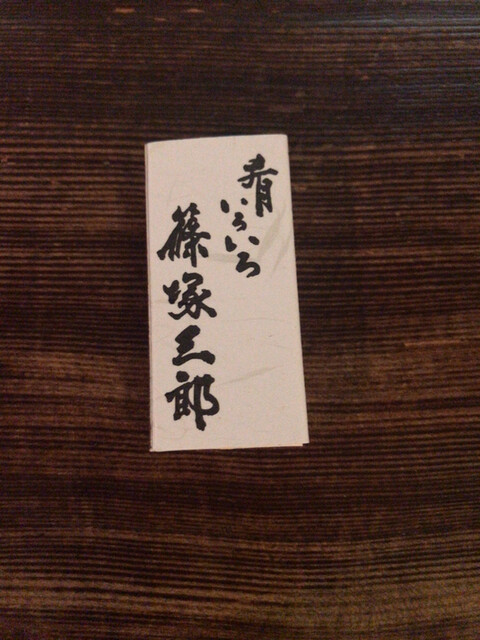 肴いろいろ
篠塚三郎